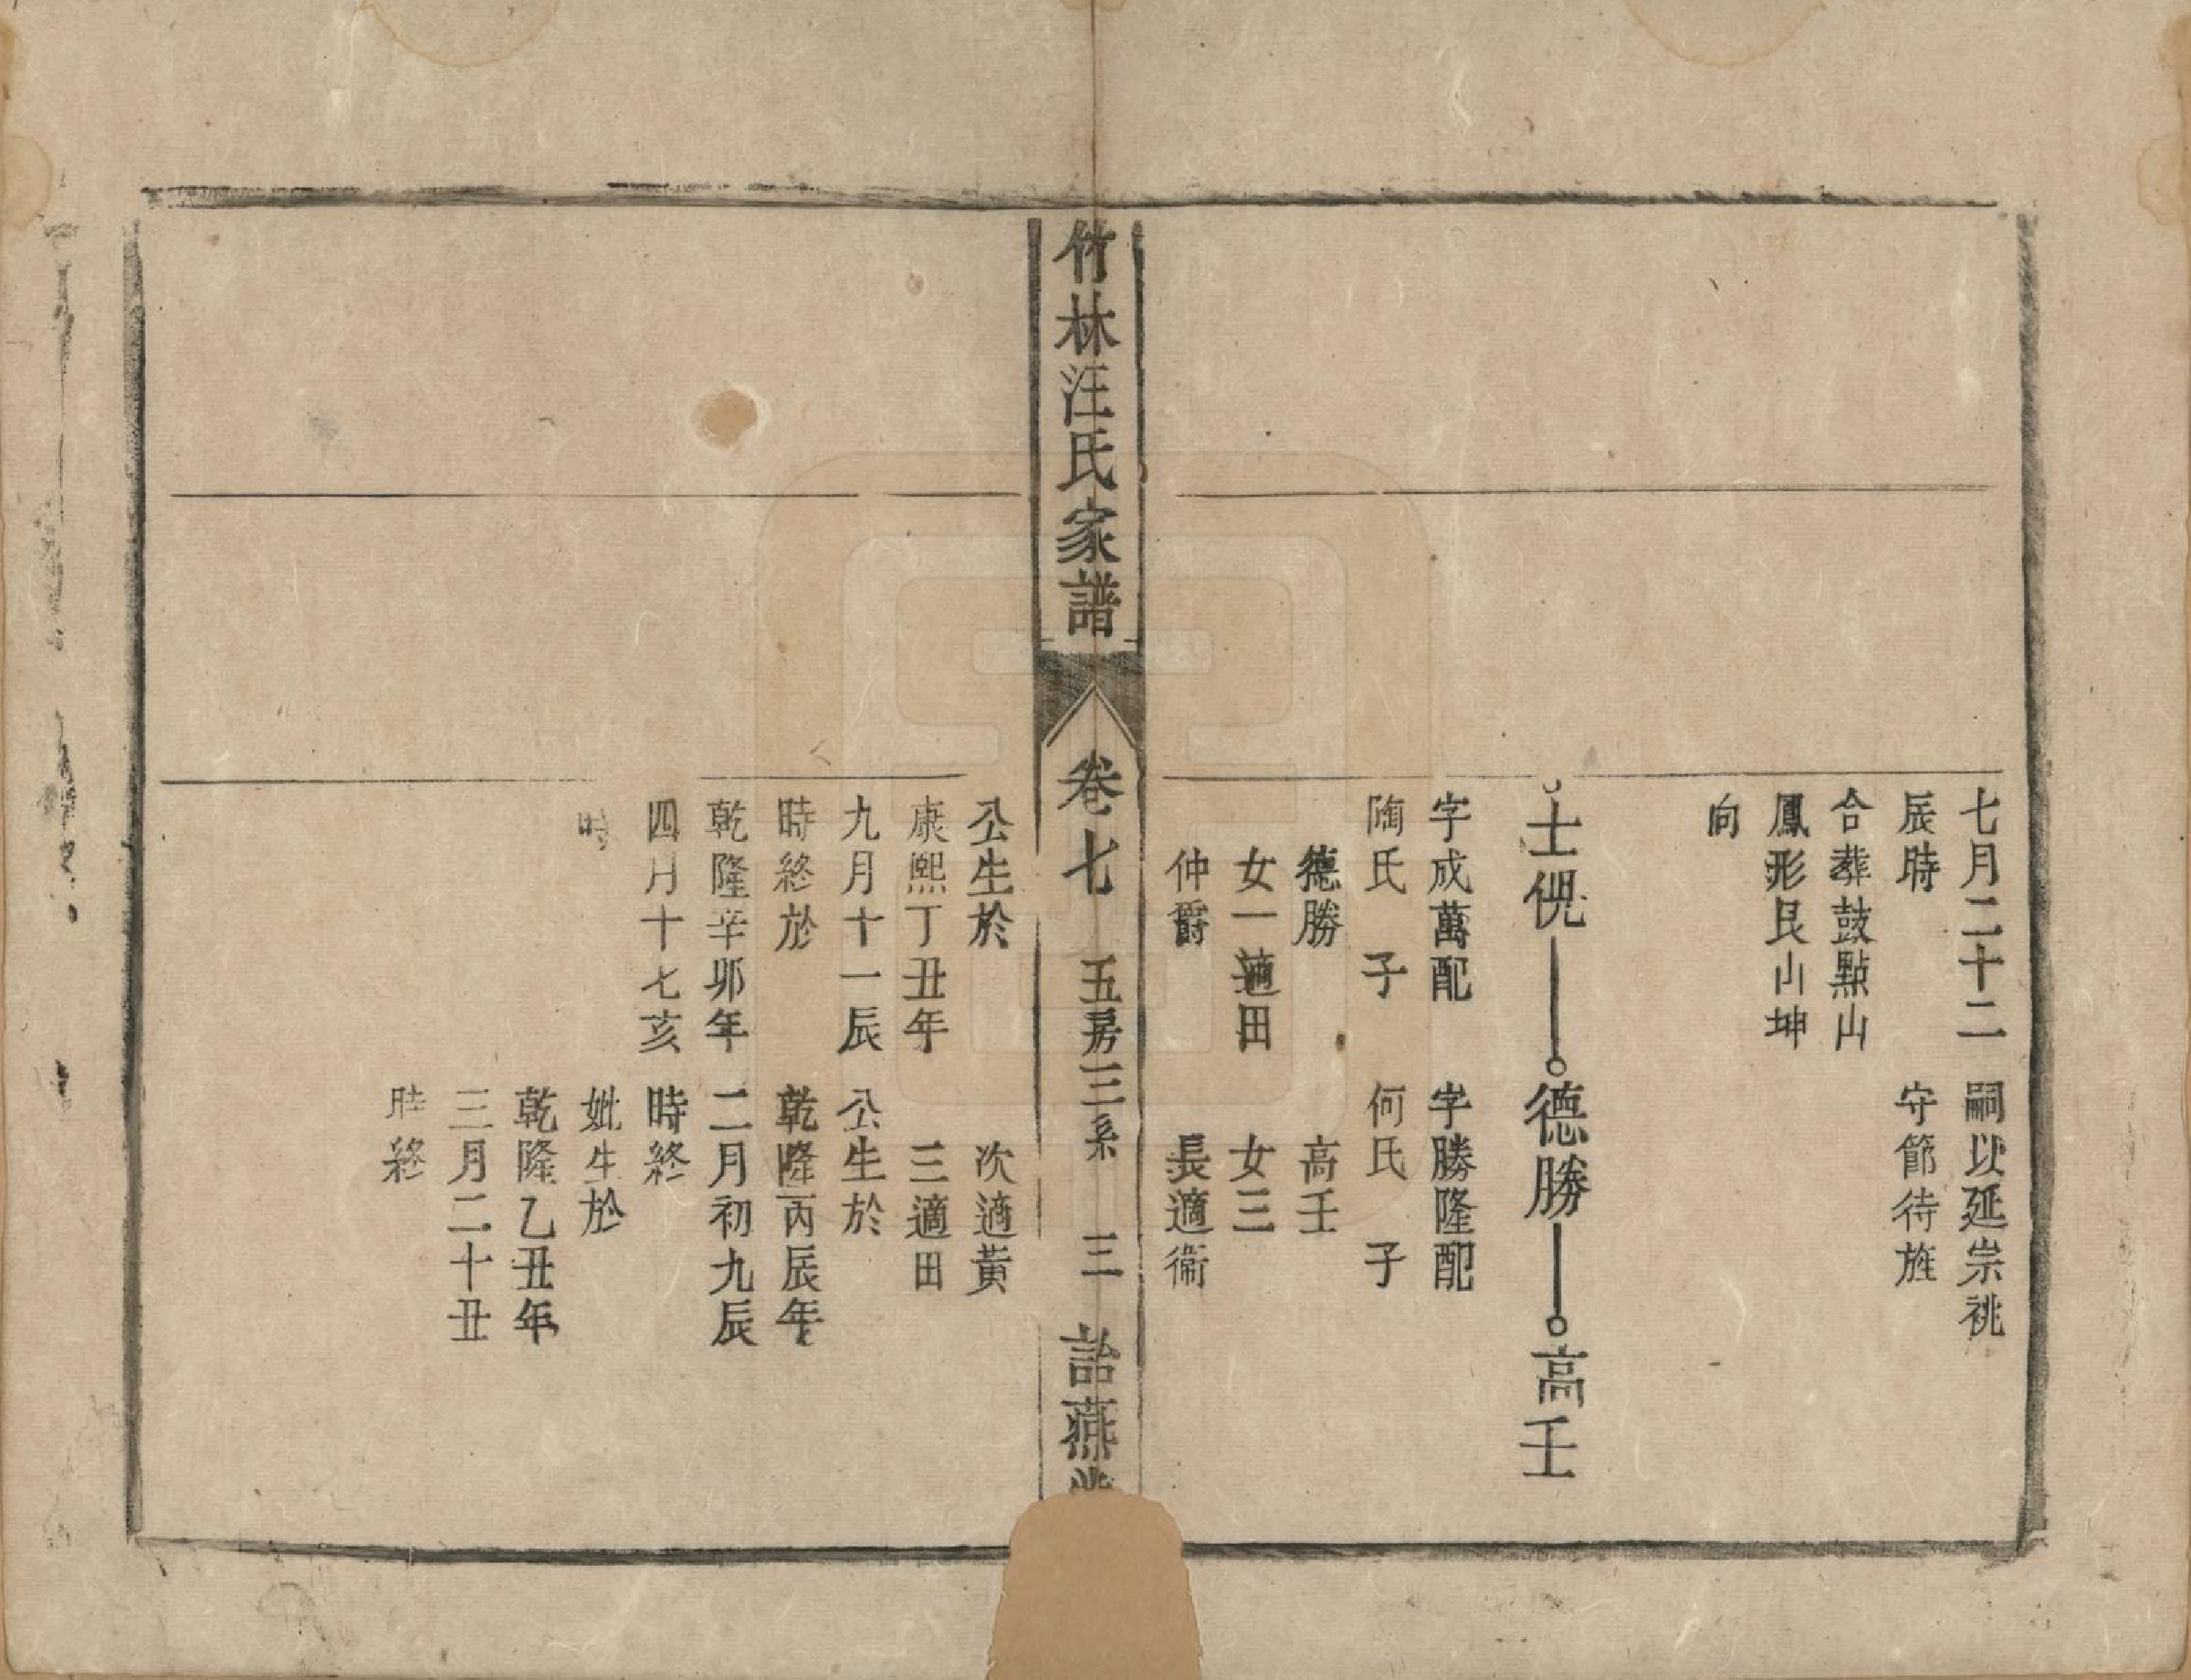 七月二十二
辰時
合葬鼓點山
鳳形艮山坤
向
嗣以延崇祧
守節待旌
士傥
德勝
高壬
字成萬配
陶氏 子
德勝
女一適田
仲爵
字勝隆配
何氏 子
高壬
女三
長適衞
竹林汪氏家譜
卷七 五房三系 三 詒燕
公生於
康熙丁丑年
九月十一辰
時終於
乾隆辛卯年
四月十七亥
時
次適黃
三適田
公生於
乾隆丙辰年
二月初九辰
時終
妣生於
乾隆乙丑年
三月二十丑
時終